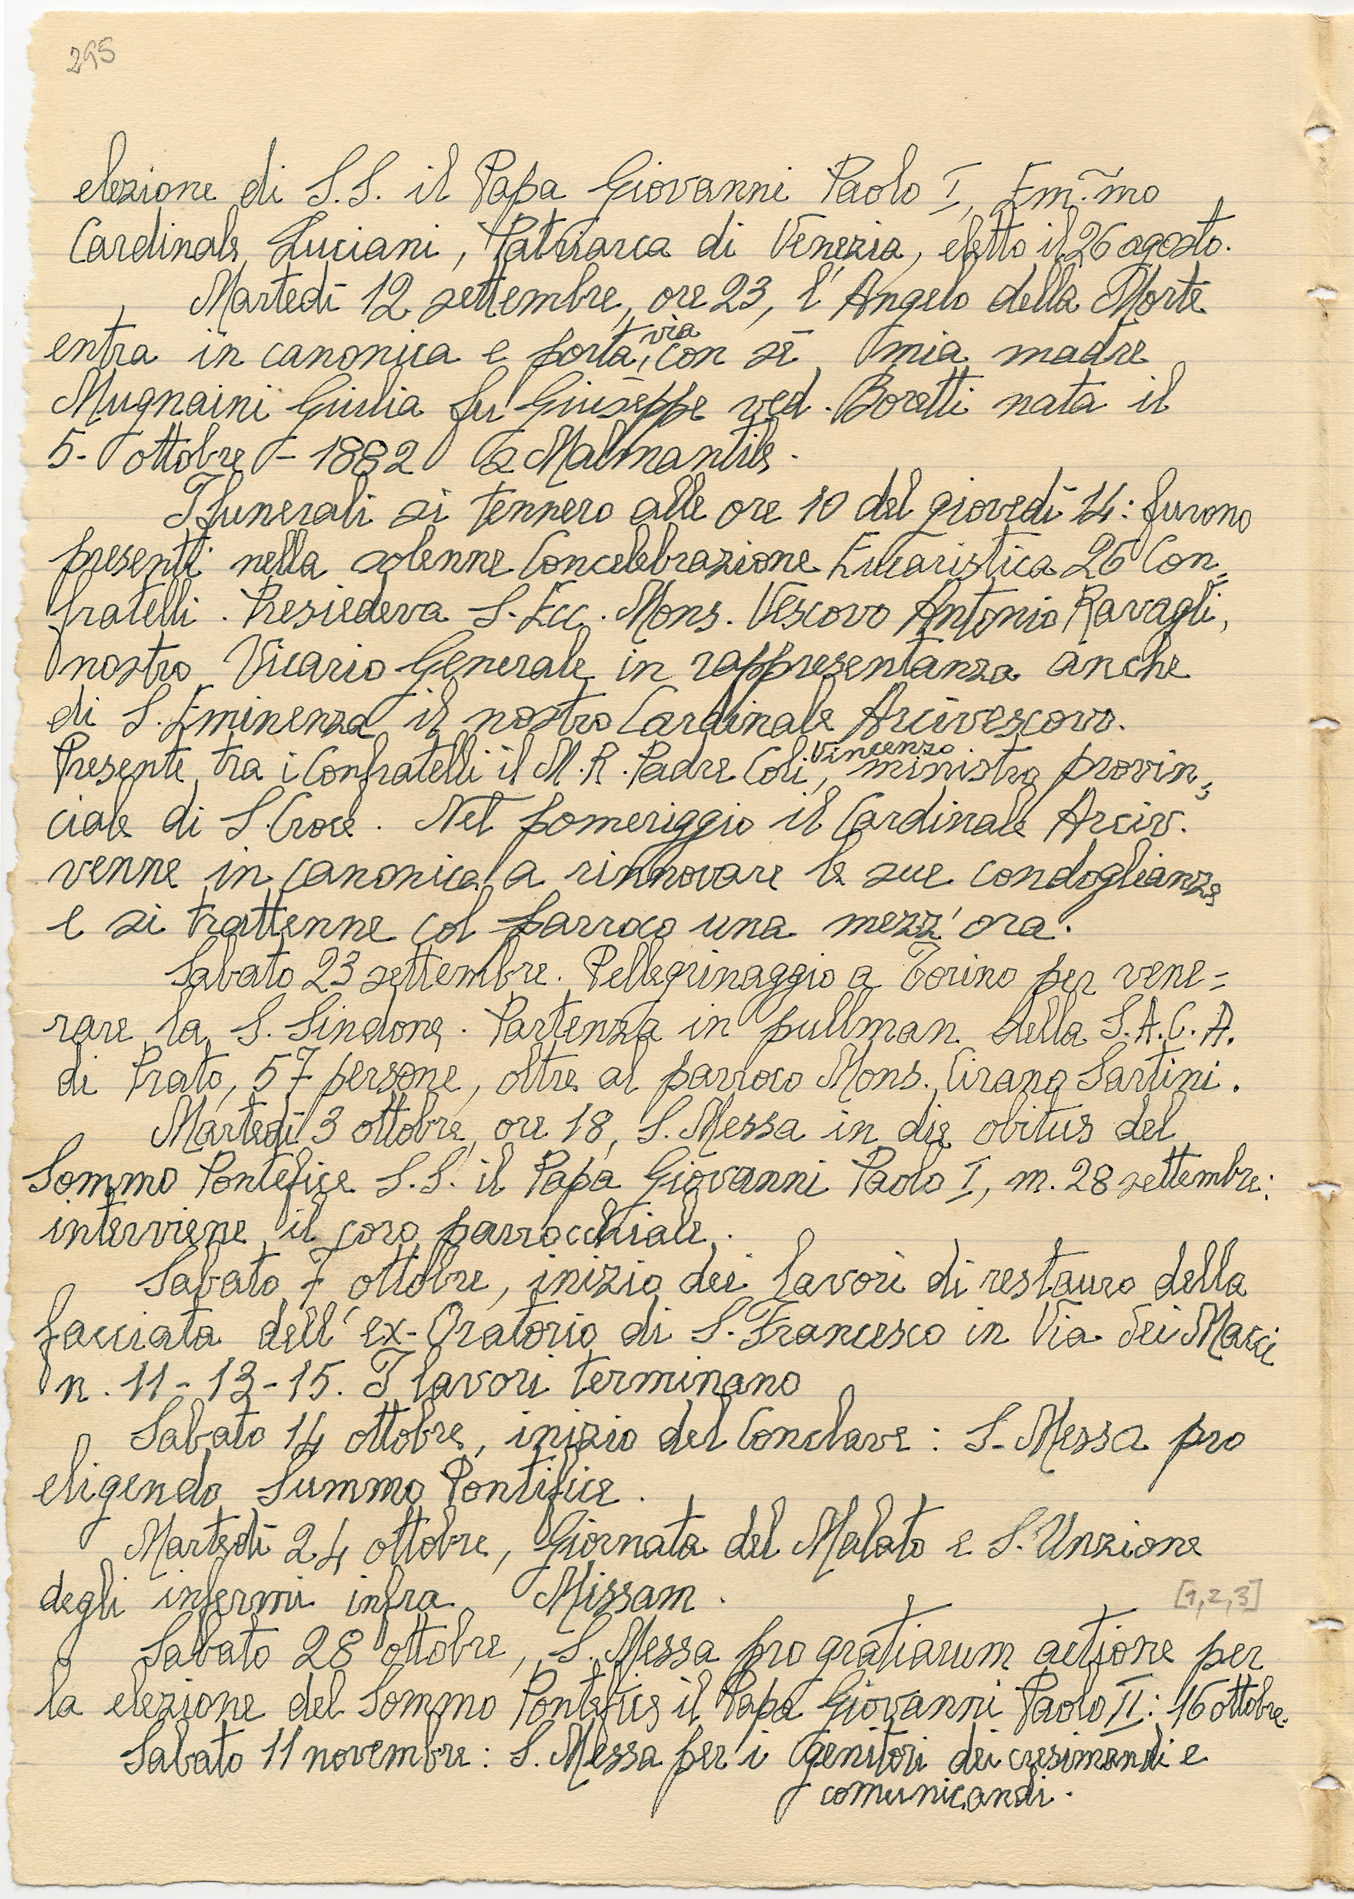 295
elezione di S.S. il Papa Giovanni Paolo I, Em.mo
Cardinale Luciani, Patriarca di Venezia, eletto il 26 agosto.
Martedì 12 settembre, ore 23, l'Angelo della Morte
entra in canonica e porta via con sé mia madre
Mugnaini Giulia fu Giuseppe ved. Boretti nata il
5 - ottobre - 1882 a Malmantile.
I funerali si tennero alle ore 10 del giovedì 14: furono
presenti nella solenne Concelebrazione Eucaristica 26 Con=
fratelli. Presiedeva S. Ecc. Mons. Vescovo Antonio Ravagli,
nostro Vicario Generale in rappresentanza anche
di S. Eminenza il nostro Cardinale Arcivescovo.
Presente tra i Confratelli il M.R. Padre Coli Vincenzo, ministro provin=
ciale di S. Croce. Nel pomeriggio il Cardinale Arciv.
venne in canonica a rinnovare le sue condoglianze
e si trattenne col parroco una mezz'ora.
Sabato 23 settembre. Pellegrinaggio a Torino per vene=
rare la S. Sindone. Partenza in pullman della S.A.C.A.
di Prato, 57 persone, oltre al parroco Mons. Cirano Sartini.
Martedì 3 ottobre, ore 18, S. Messa in die obitus del
Sommo Pontefice S.S. il Papa Giovanni Paolo I, m. 28 settembre:
interviene il coro parrocchiale.
Sabato 7 ottobre, inizio dei lavori di restauro della
facciata dell'ex-Oratorio di S. Francesco in Via dei Macci
n. 11-13-15. I lavori terminano
Sabato 14 ottobre, inizio del Conclave: S. Messa pro
eligendo Summo Pontifice.
Martedì 24 ottobre, Giornata del Malato e S. Unzione
degli infermi infra Missam.
[1,2,3]
Sabato 28 ottobre, S. Messa pro gratiarum actione per
la elezione del Sommo Pontefice il Papa Giovanni Paolo II: 16 ottobre.
Sabato 11 novembre: S. Messa per i genitori dei cresimandi e
comunicandi.